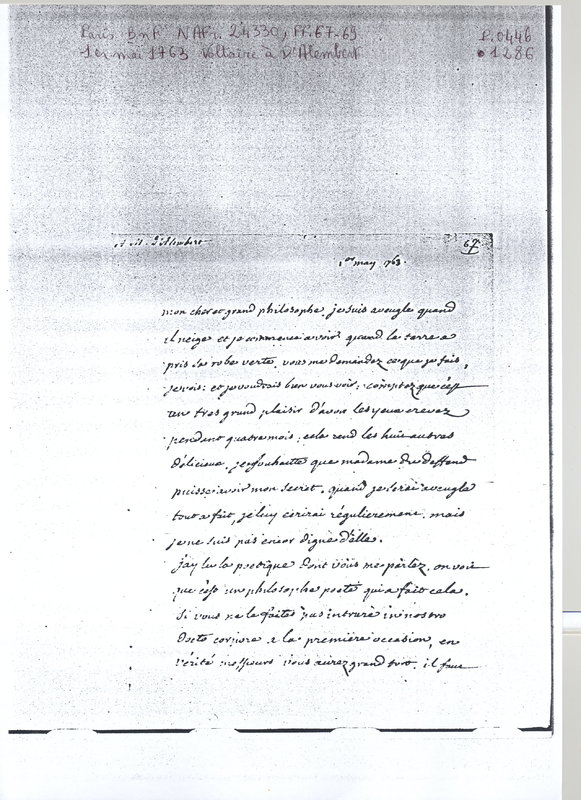 Paris BnF NAFr. 24330, ff. 67-69
P.0446
1er mai 1763 Voltaire à D'Alembert
1286
A M. D'Alembert
67
1er may 1763.
mon cher et grand philosophe, je suis aveugle quand
il neige et je commence a voir quand la terre a
pris sa robe verte. vous me demandez ce que je fais,
je vois; et je voudrais bien vous voir; comptez que c'est
un tres grand plaisir d'avoir les yeux crevez
pendant quatre mois; cela rend les huit autres
délicieux. je souhaitte que madame du deffand
puisse avoir mon secret. quand je serai aveugle
tout a fait, je luy écrirai régulierement, mais
je ne suis pas encor digne d'elle.
j'ay lu la poetique dont vous me parlez. on voit
que c'est un philosophe poete qui a fait cela.
Si vous ne le faites pas intrare in nostro
docto corpore a la premiere occasion, en
vérité messieurs vous aurez grand tort. il faut